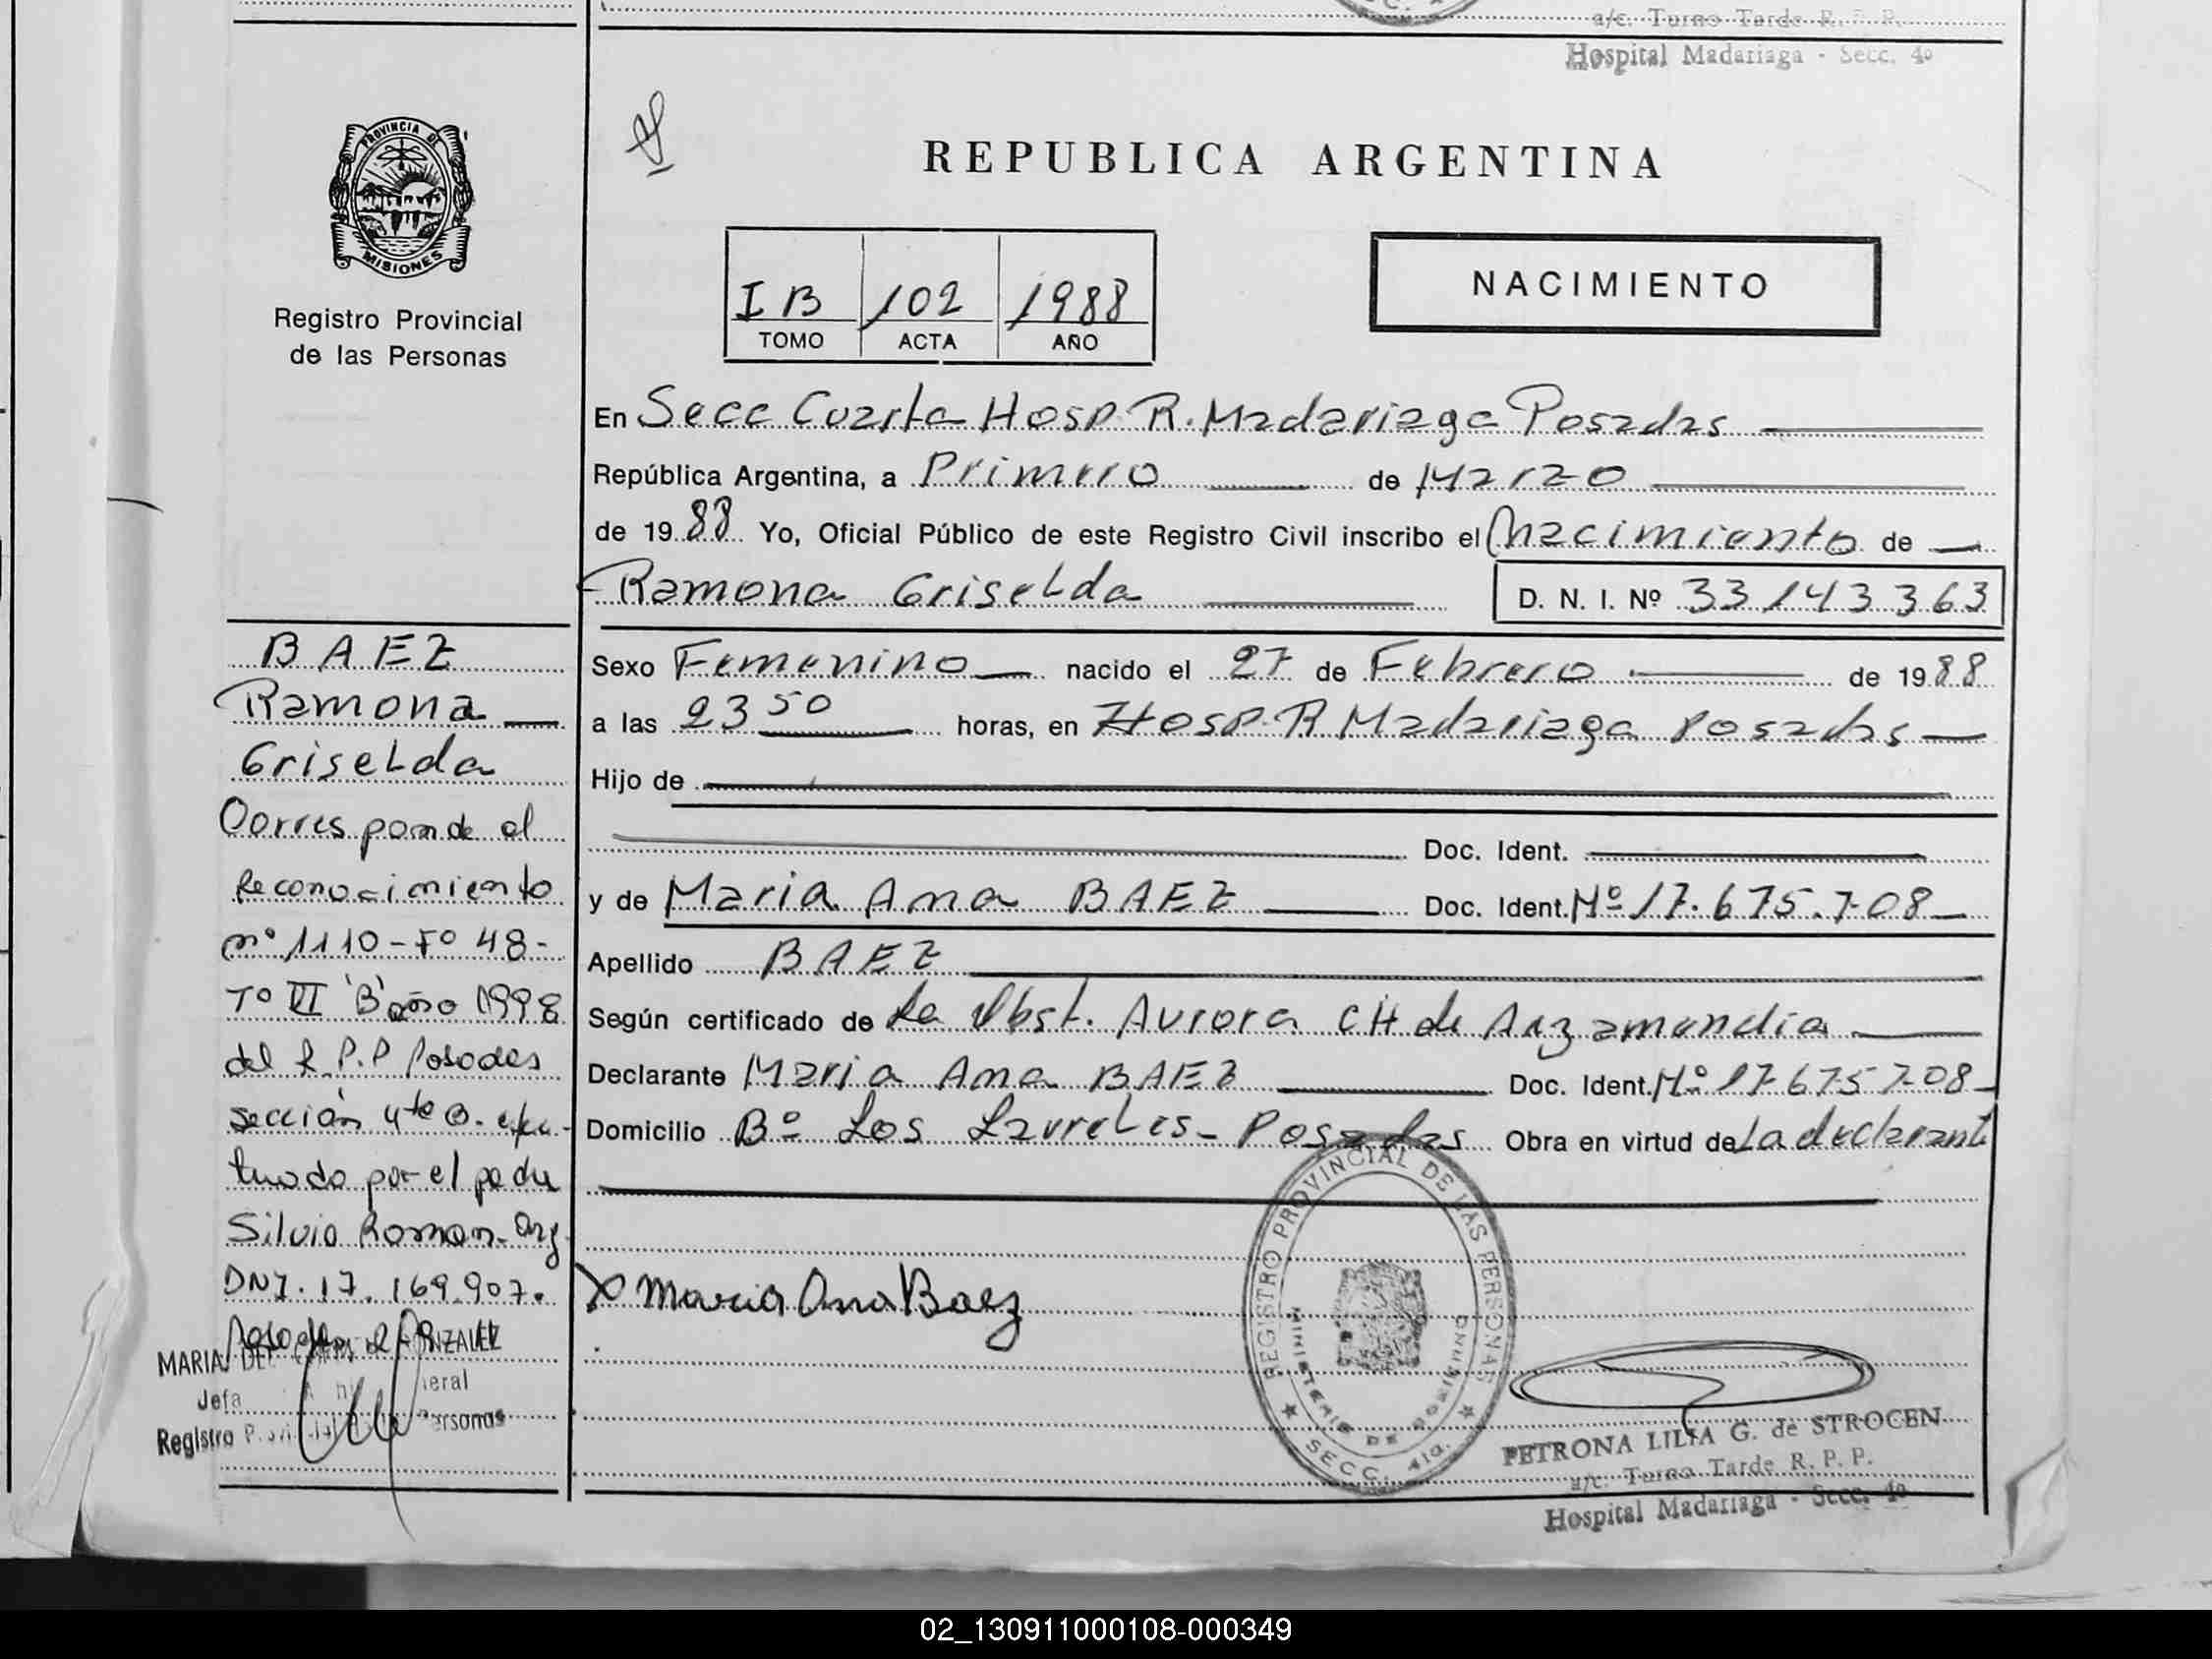 a/c. Turno Tarde R. P. P.
Hospital Madariaga - Secc. 4ª
PROVINCIA DE
MISIONES
Registro Provincial
de las Personas
REPUBLICA ARGENTINA
I B 102 1988
TOMO ACTA AÑO
NACIMIENTO
En Secc Cuarta Hosp. R. Madariaga Posadas
República Argentina, a Primero de Marzo
de 1988 Yo, Oficial Público de este Registro Civil inscribo el Nacimiento de
Ramona Griselda D. N. I. Nº 33143363
Sexo Femenino nacido el 27 de Febrero de 1988
a las 23 50 horas, en Hosp. R Madariaga Posadas
Hijo de
Doc. Ident.
y de Maria Ana BAEZ Doc. Ident. Nº 17.675.708
Apellido BAEZ
Según certificado de La Obst. Aurora CH de Arzamendia
Declarante Maria Ana BAEZ Doc. Ident. Nº 17675708
Domicilio Bº Los Laureles - Posadas Obra en virtud de La declarante
Maria Ana Baez
REGISTRO PROVINCIAL DE LAS PERSONAS
MINISTERIO DE GOBIERNO
SECC. 4ta.
PETRONA LILIA G. de STROCEN
a/c. Turno Tarde R. P. P.
Hospital Madariaga - Secc. 4ª
BAEZ
Ramona
Griselda
Corresponde al
Reconocimiento
nº 1110 - Fº 48 -
Tº VI "B" año 1998
del R.P.P Posadas
sección 4ta efec-
tuado por el padre
Silvio Roman - Arg
DNI. 17.169.907.
MARIA DEL GONZALEZ
Jefa
Registro Provincial Personas
02_130911000108-000349